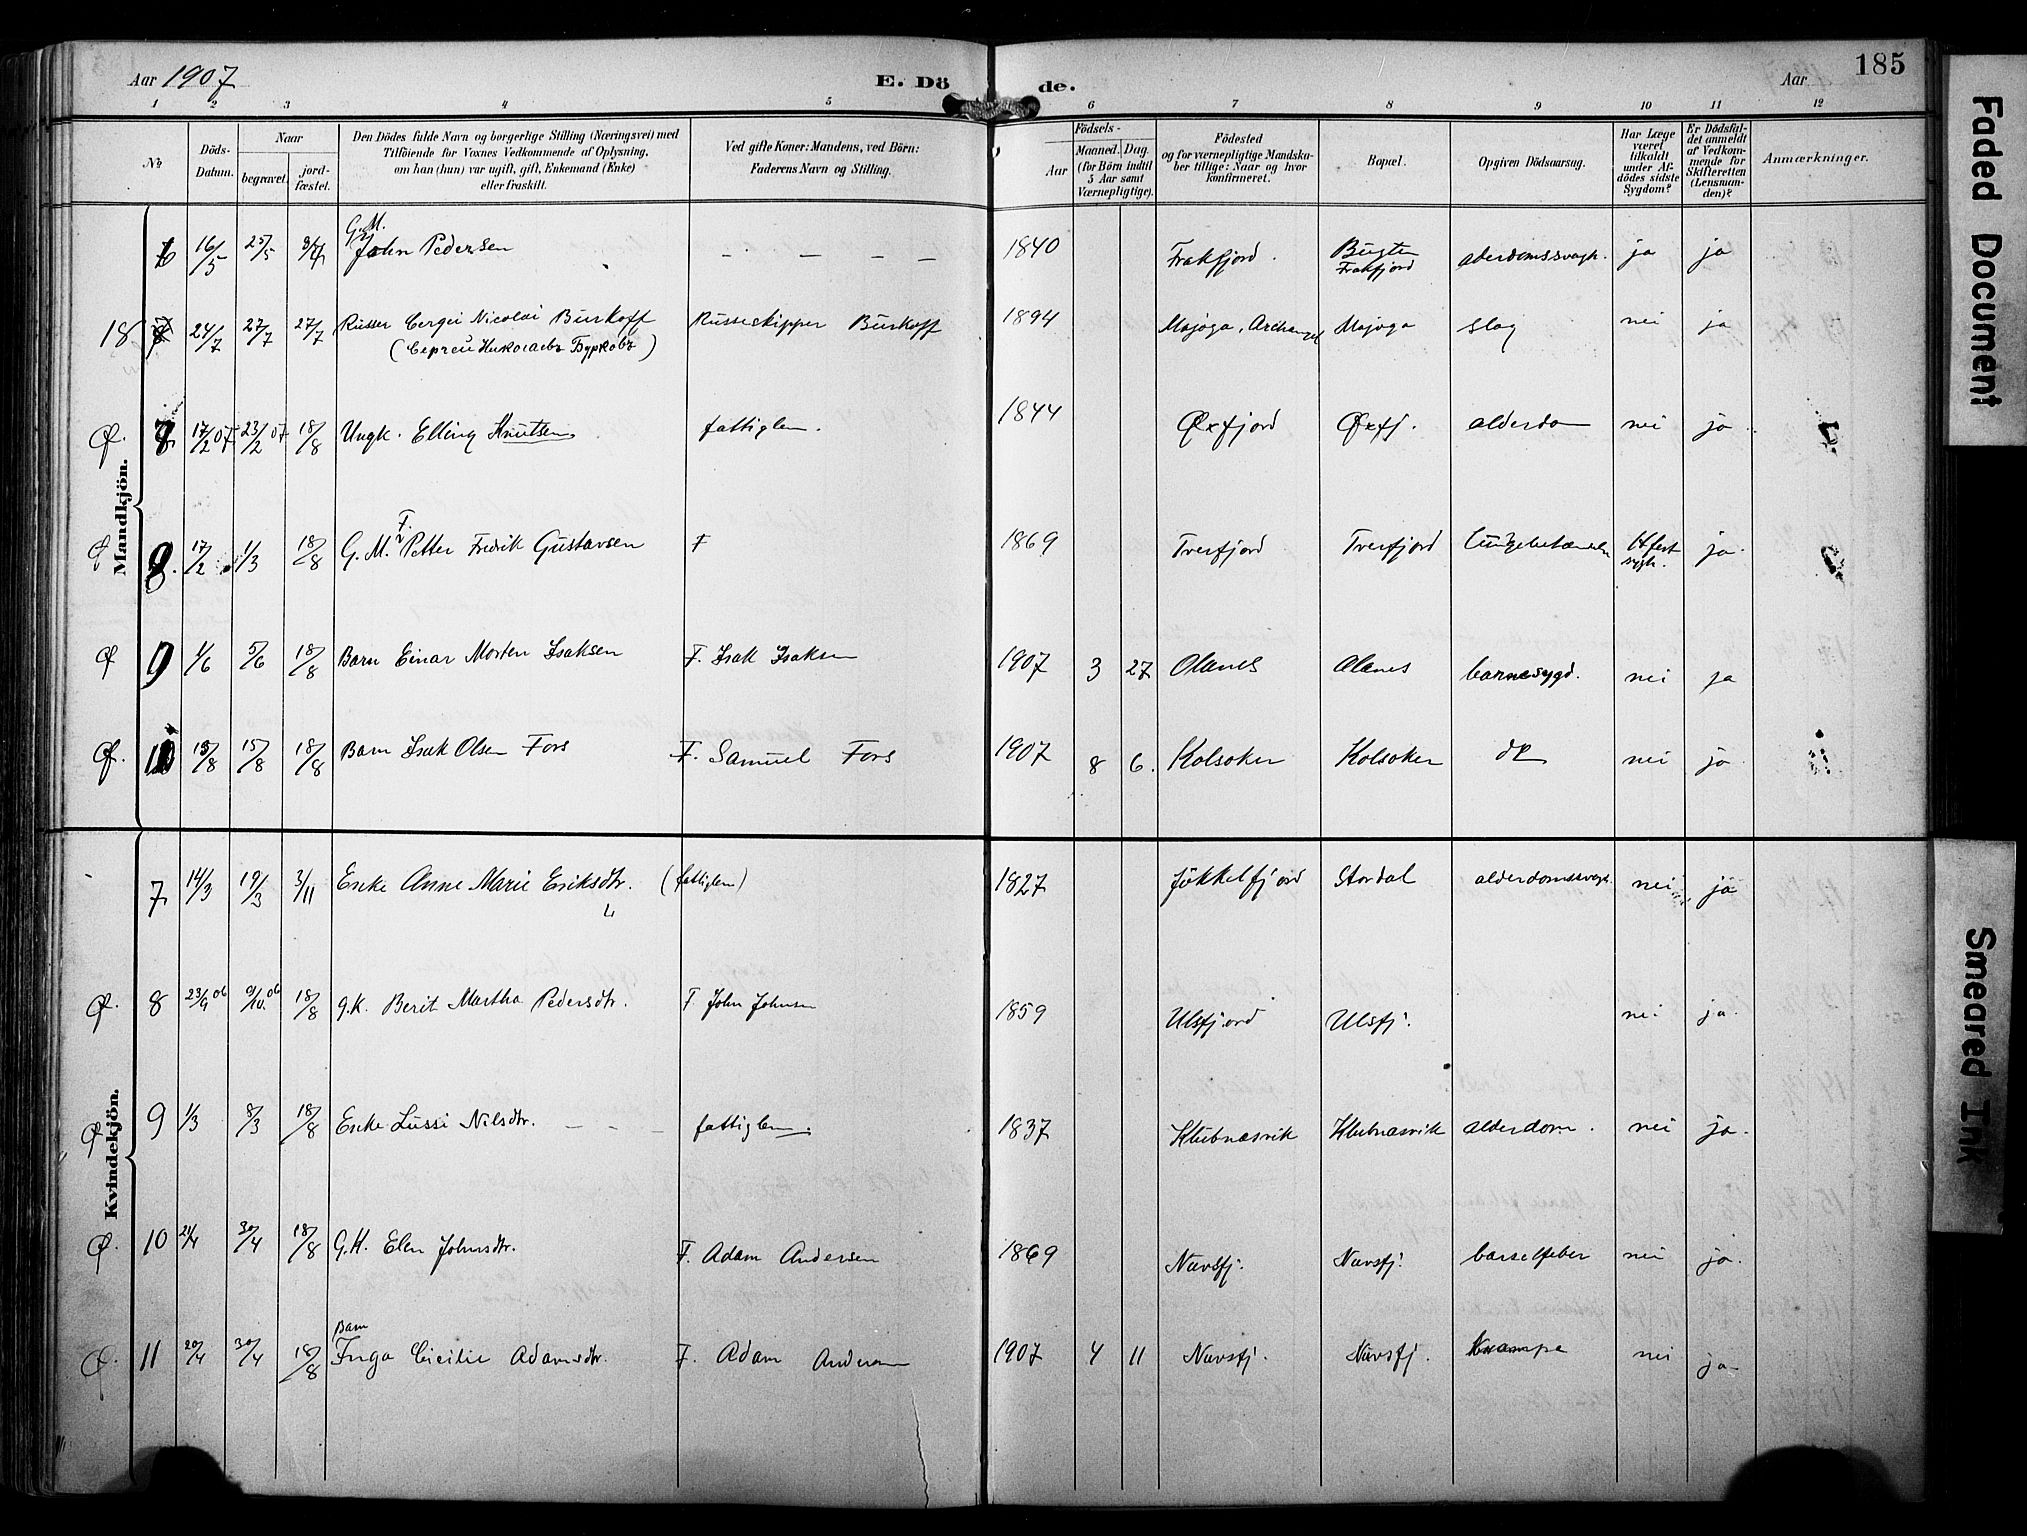 Aar 1907
E. Döde.
Aar
185
1 2 3 4 5 6 7 8 9 10 11 12
No
Döds-Datum.
Naar
begravet.
jord-fæstet.
Den Dödes fulde Navn og borgerlige Stilling (Næringsvei) med
Tilföiende for Voxnes Vedkommende af Oplysning,
om han (hun) var ugift, gift, Enkemand (Enke)
eller fraskilt.
Ved gifte Koner: Mandens, ved Börn:
Faderens Navn og Stilling.
Födsels-
Aar
Maaned. Dag.
(for Börn indtil
5 Aar samt
Værnepligtige).
Födested
og for værnepligtige Mandska-
ber tillige: Naar og hvor
konfirmeret.
Bopæl.
Opgiven Dödsaarsag.
Har Læge
været
tilkaldt
under Af-
dödes sidste
Sygdom?
Er Dödsfal-
det anmeldt
af Vedkom-
mende for
Skifteretten
(Lensman-
den)?
Anmærkninger.
Mandkjön.
G. M.
6 16/5 25/5 John Pedersen – – – – 1840 Frakfjord. Bugten Frakfjord alerdomssvagh. ja ja
18 24/7 27/7 27/7 Russer Sergei Nicolai Burkoff Russeskipper Burkoff 1894 Majoga, Archangel Majoga slag nei ja
(Сергей Николаевъ Бурковъ)
Ø. 17/2 07 23/2 07 18/8 Ungk. Elling Knutsen fattiglem. 1844 Øxfjord Øxfj. alderdom nei ja.
Ø 17/2 1/3 18/8 G. M. Petter Fredrik Gustavsen F 1869 Tverfjord Tverfjord Lungebetændelse ja.
Ø 9 1/6 5/6 18/8 Barn Einar Morten Isaksen F. Isak Isaksen 1907 3 27 Olanes Olanes barnesygd. nei ja
Ø. 10 15/8 18/8 Barn Isak Olsen Fors F. Samuel Fors 1907 8 6. Kolsoker Kolsoker do nei ja
Kvindekjön.
7 14/3 19/3 3/11 Enke Anne Marie Eriksdtr. (fattiglem) 1827 Jökkelfjord Stordal alderdomssvagh. nei ja
Ø. 8 23/9 06 18/8 g.K. Berit Martha Pedersdtr. F John Johnsen 1859 Ulsfjord Ulsfj. nei ja.
Ø 9 1/3 8/3 18/8 Enke Lussi Nilsdtr. – – – fattiglem. 1837 Klubnæsvik Klubnæsvik alderdom. nei ja.
Ø. 10 24/4 30/4 18/8 G.K. Elen Johnsdtr. F. Adam Andersen 1869 Nuvsfj. Nuvsfj. barselfeber nei ja.
Barn
Ø. 11 20/4 30/4 18/8 Inga Cicilie Adamsdtr. F. Adam Andersen 1907 4 11 Nuvsfj. Nuvsfj. krampe nei ja
Faded Document
Smeared Ink